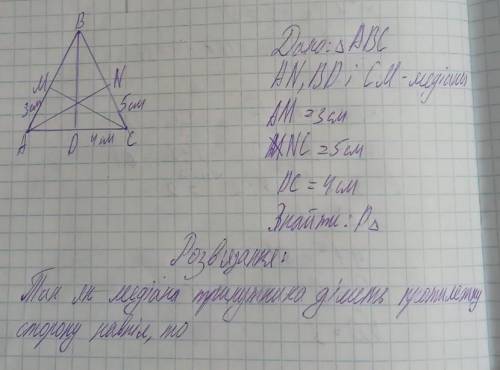 B
M
N
3см
5см
A
D
4см
C
Дано: △ABC
AN, BD і CM - медіани
AM = 3 см
NC = 5 см
DC = 4 см
Знайти: P△
Розв'язання:
Так як медіана трикутника ділить протилежну
сторону навпіл, то